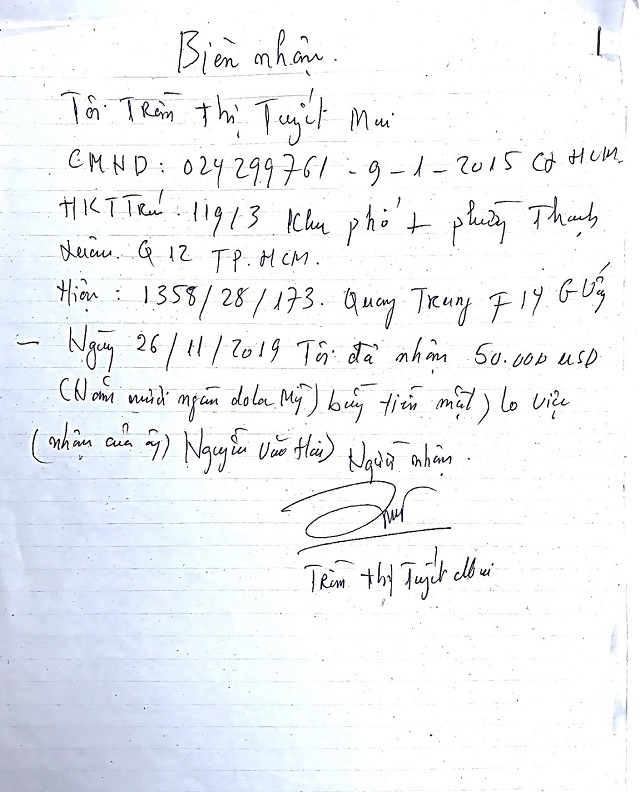 Biên nhận.
Tôi Trần Thị Tuyết Mai
CMND: 024299761 - 9-1-2015 CA HCM
HKTTrú: 119/3 Khu phố 1 phường Thạnh
Xuân. Q 12 TP. HCM.
Hiện: 1358/28/173. Quang Trung F 14 G Vấp
- Ngày 26/11/2019 Tôi đã nhận 50.000 USD
(Năm mươi ngàn dola Mỹ) bằng tiền mặt) lo việc
(nhận của ông) Nguyễn Văn Hải) Người nhận.
Trần Thị Tuyết Mai